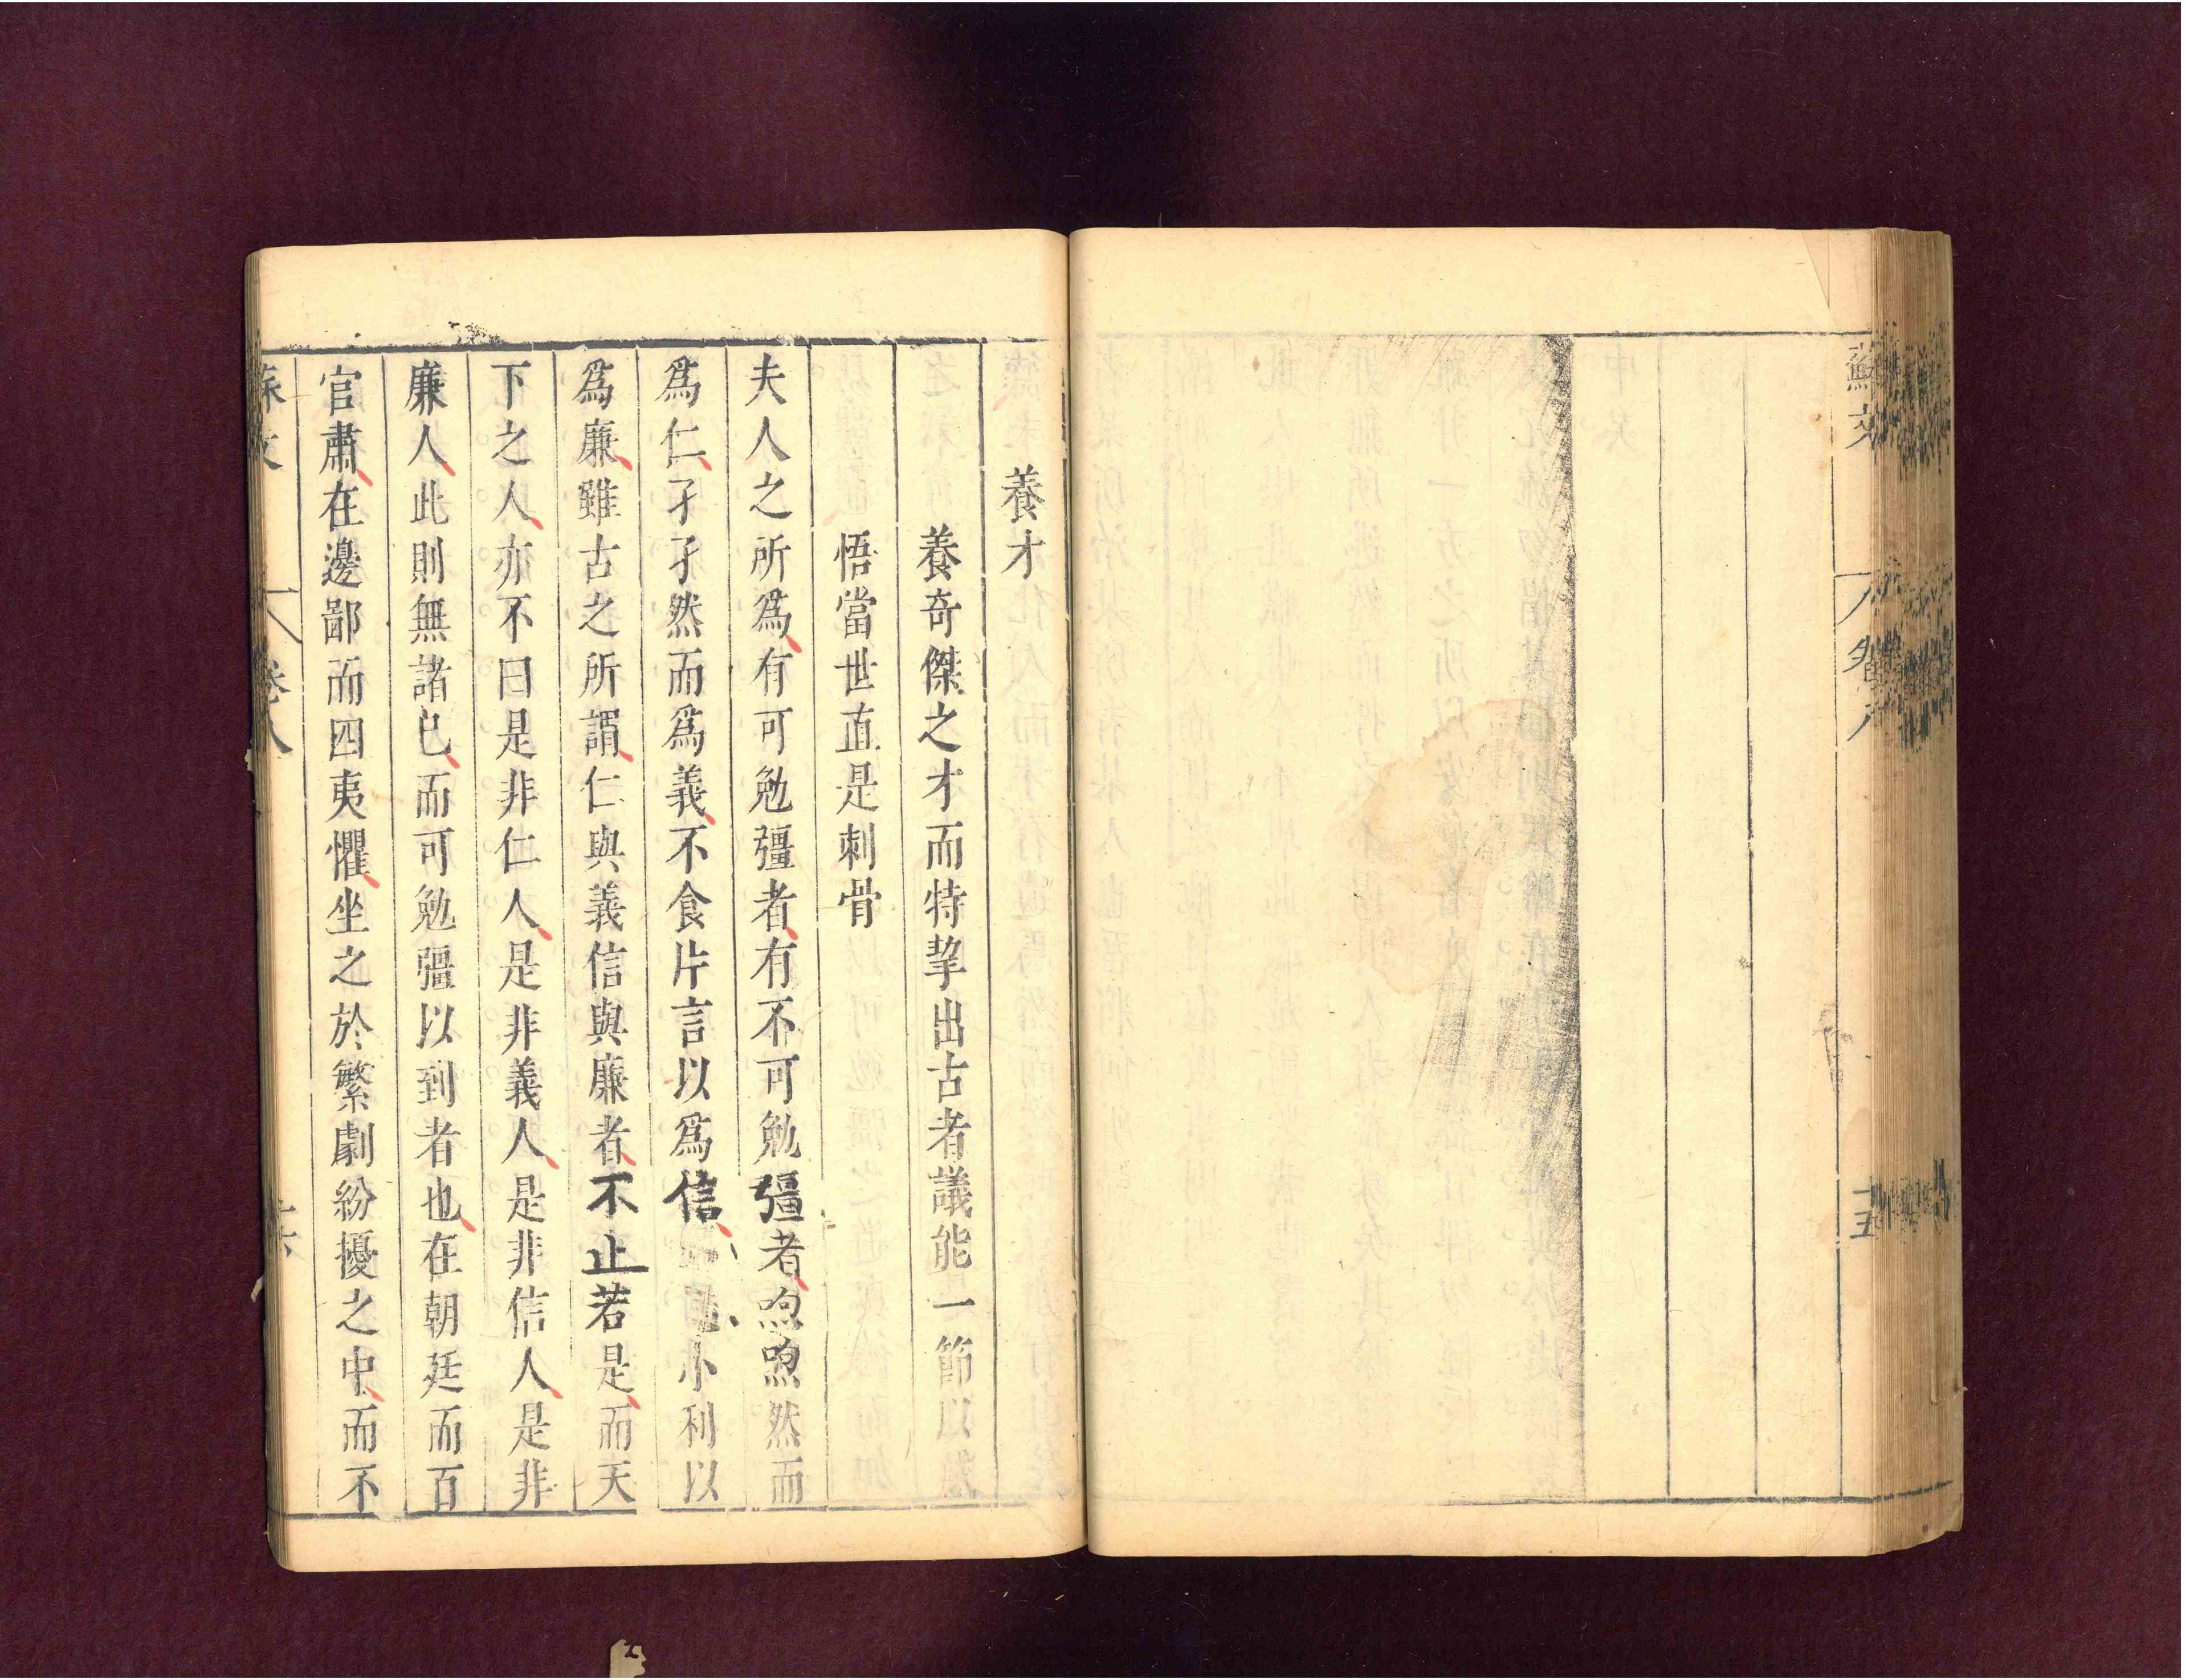 蘇文
卷八
十五
養才
養奇傑之才而特挈出古者議能一節以
悟當世直是刺骨
夫人之所爲有可勉彊者有不可勉彊者煦煦然而
爲仁孑孑然而爲義不食片言以爲信小利以
爲廉雖古之所謂仁與義信與廉者不止若是而天
下之人亦不曰是非仁人是非義人是非信人是非
廉人此則無諸已而可勉彊以到者也在朝廷而百
官肅在邊鄙而四夷懼坐之於繁劇紛擾之中而不
蘇文
卷八
十六